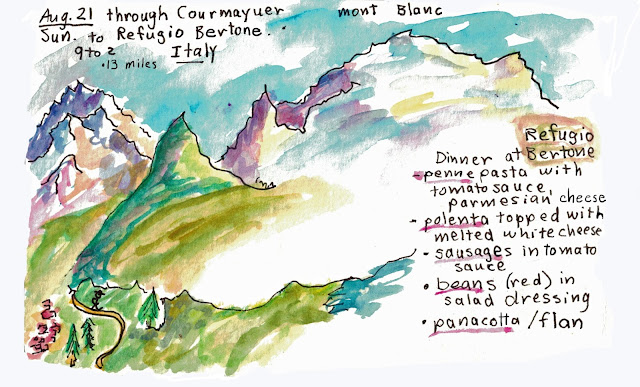 Aug. 21 through Courmayuer
Sun. to Refugio Bertone.
9 to 2 Italy
·13 miles
mont Blanc
Refugio
Dinner at Bertone
- penne pasta with
tomato sauce,
parmesian cheese
- polenta topped with
melted white cheese
- sausages in tomato
sauce
• beans (red) in
salad dressing
• panacotta / flan